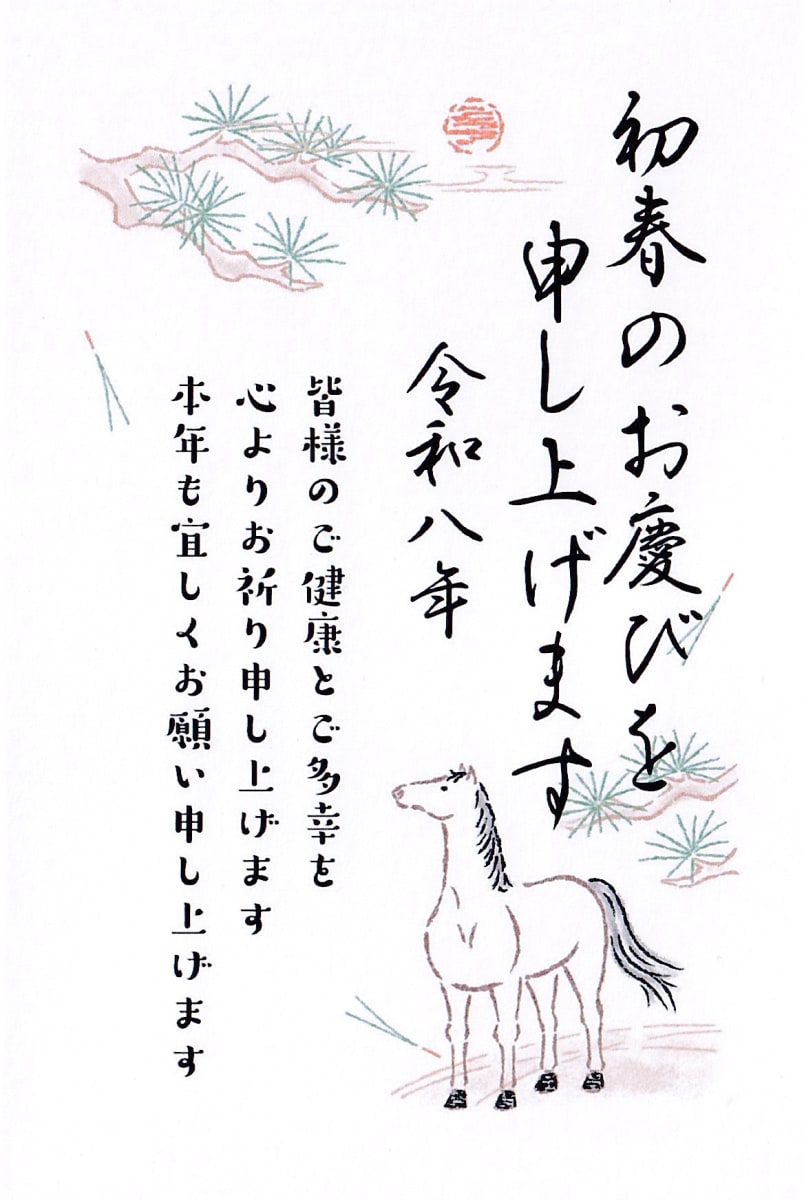 初春のお慶びを
申し上げます
令和八年
皆様のご健康とご多幸を
心よりお祈り申し上げます
本年も宜しくお願い申し上げます